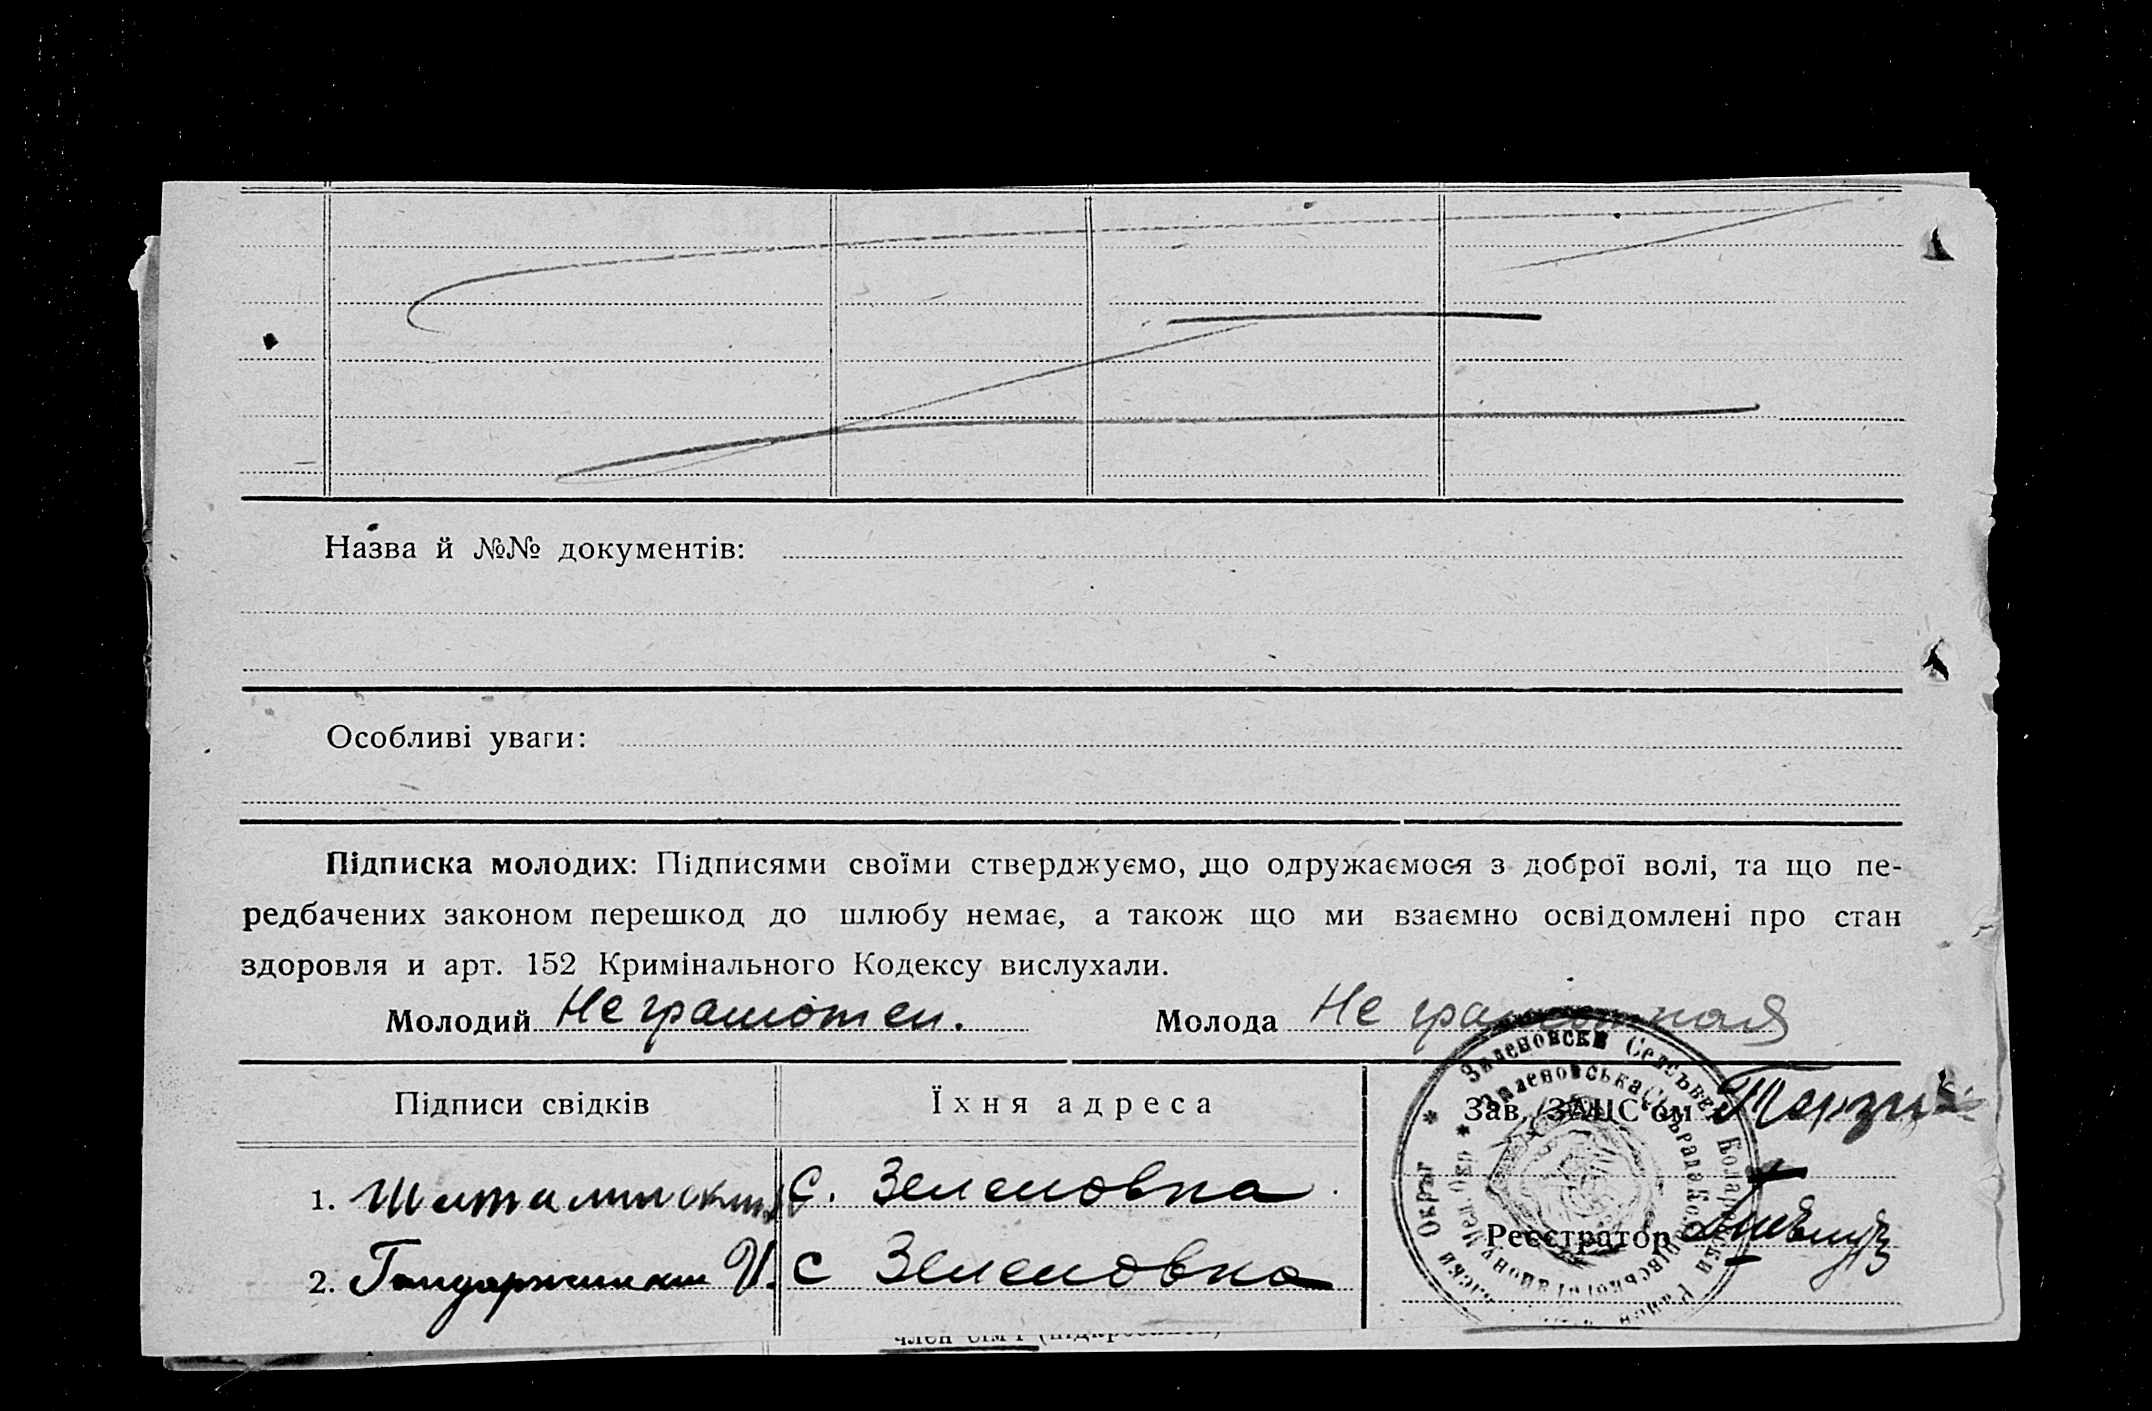 Назва й №№ документів:
Особливі уваги:
Підписка молодих: Підписями своїми стверджуємо, що одружаємося з доброї волі, та що пе-
редбачених законом перешкод до шлюбу немає, а також що ми взаємно освідомлені про стан
здоровля и арт. 152 Кримінального Кодексу вислухали.
Молодий Не грамотен. Молода Не грамотная
Підписи свідків Їхня адреса Зав. ЗАЦС‘ом
1. с. Зеленовка
Реєстратор
2. с Зеленовка
член сім'ї (підкреслити)